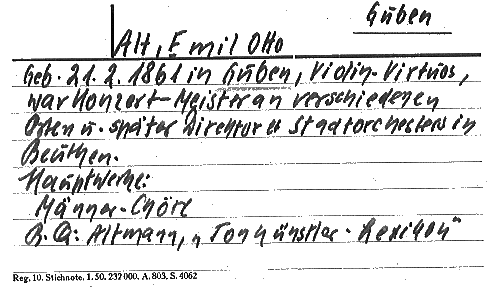 Guben
Alt, Emil Otto
Geb. 21.2.1861 in Guben, Violin-Virtuos,
war Konzert-Meister an verschiedenen
Orten u. später Direktor d. Stadtorchesters in
Beuthen.
Hauptwerke:
Männer-Chöre
B.Q: Altmann, „Tonkünstler-Lexikon"
Reg. 10. Stichnote. 1. 50. 232 000. A. 803. S. 4062